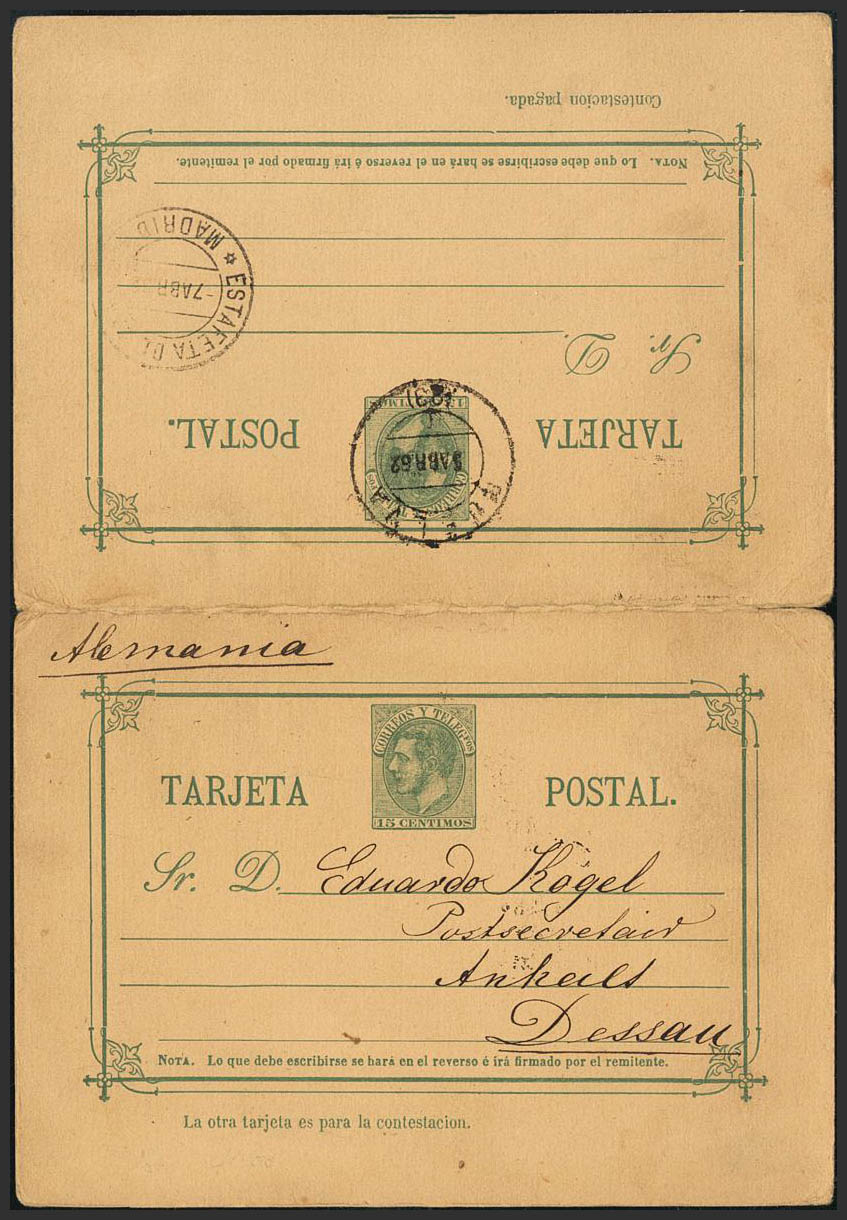 Contestacion pagada.
NOTA. Lo que debe escribirse se hará en el reverso é irá firmado por el remitente.
MADRID
ESTAFETA
7 ABR
Sr. D.
TARJETA POSTAL.
HUELVA
5 ABR. 82
Alemania
CORREOS Y TELEGFOS
15 CENTIMOS
TARJETA POSTAL.
Sr. D. Eduardo Kogel
Postsecretair
Anhalt
Dessau
NOTA. Lo que debe escribirse se hará en el reverso é irá firmado por el remitente.
La otra tarjeta es para la contestacion.